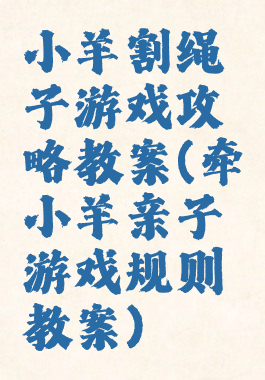 小羊割绳
子游戏攻
略教案(牵
小羊亲子
游戏规则
教案)